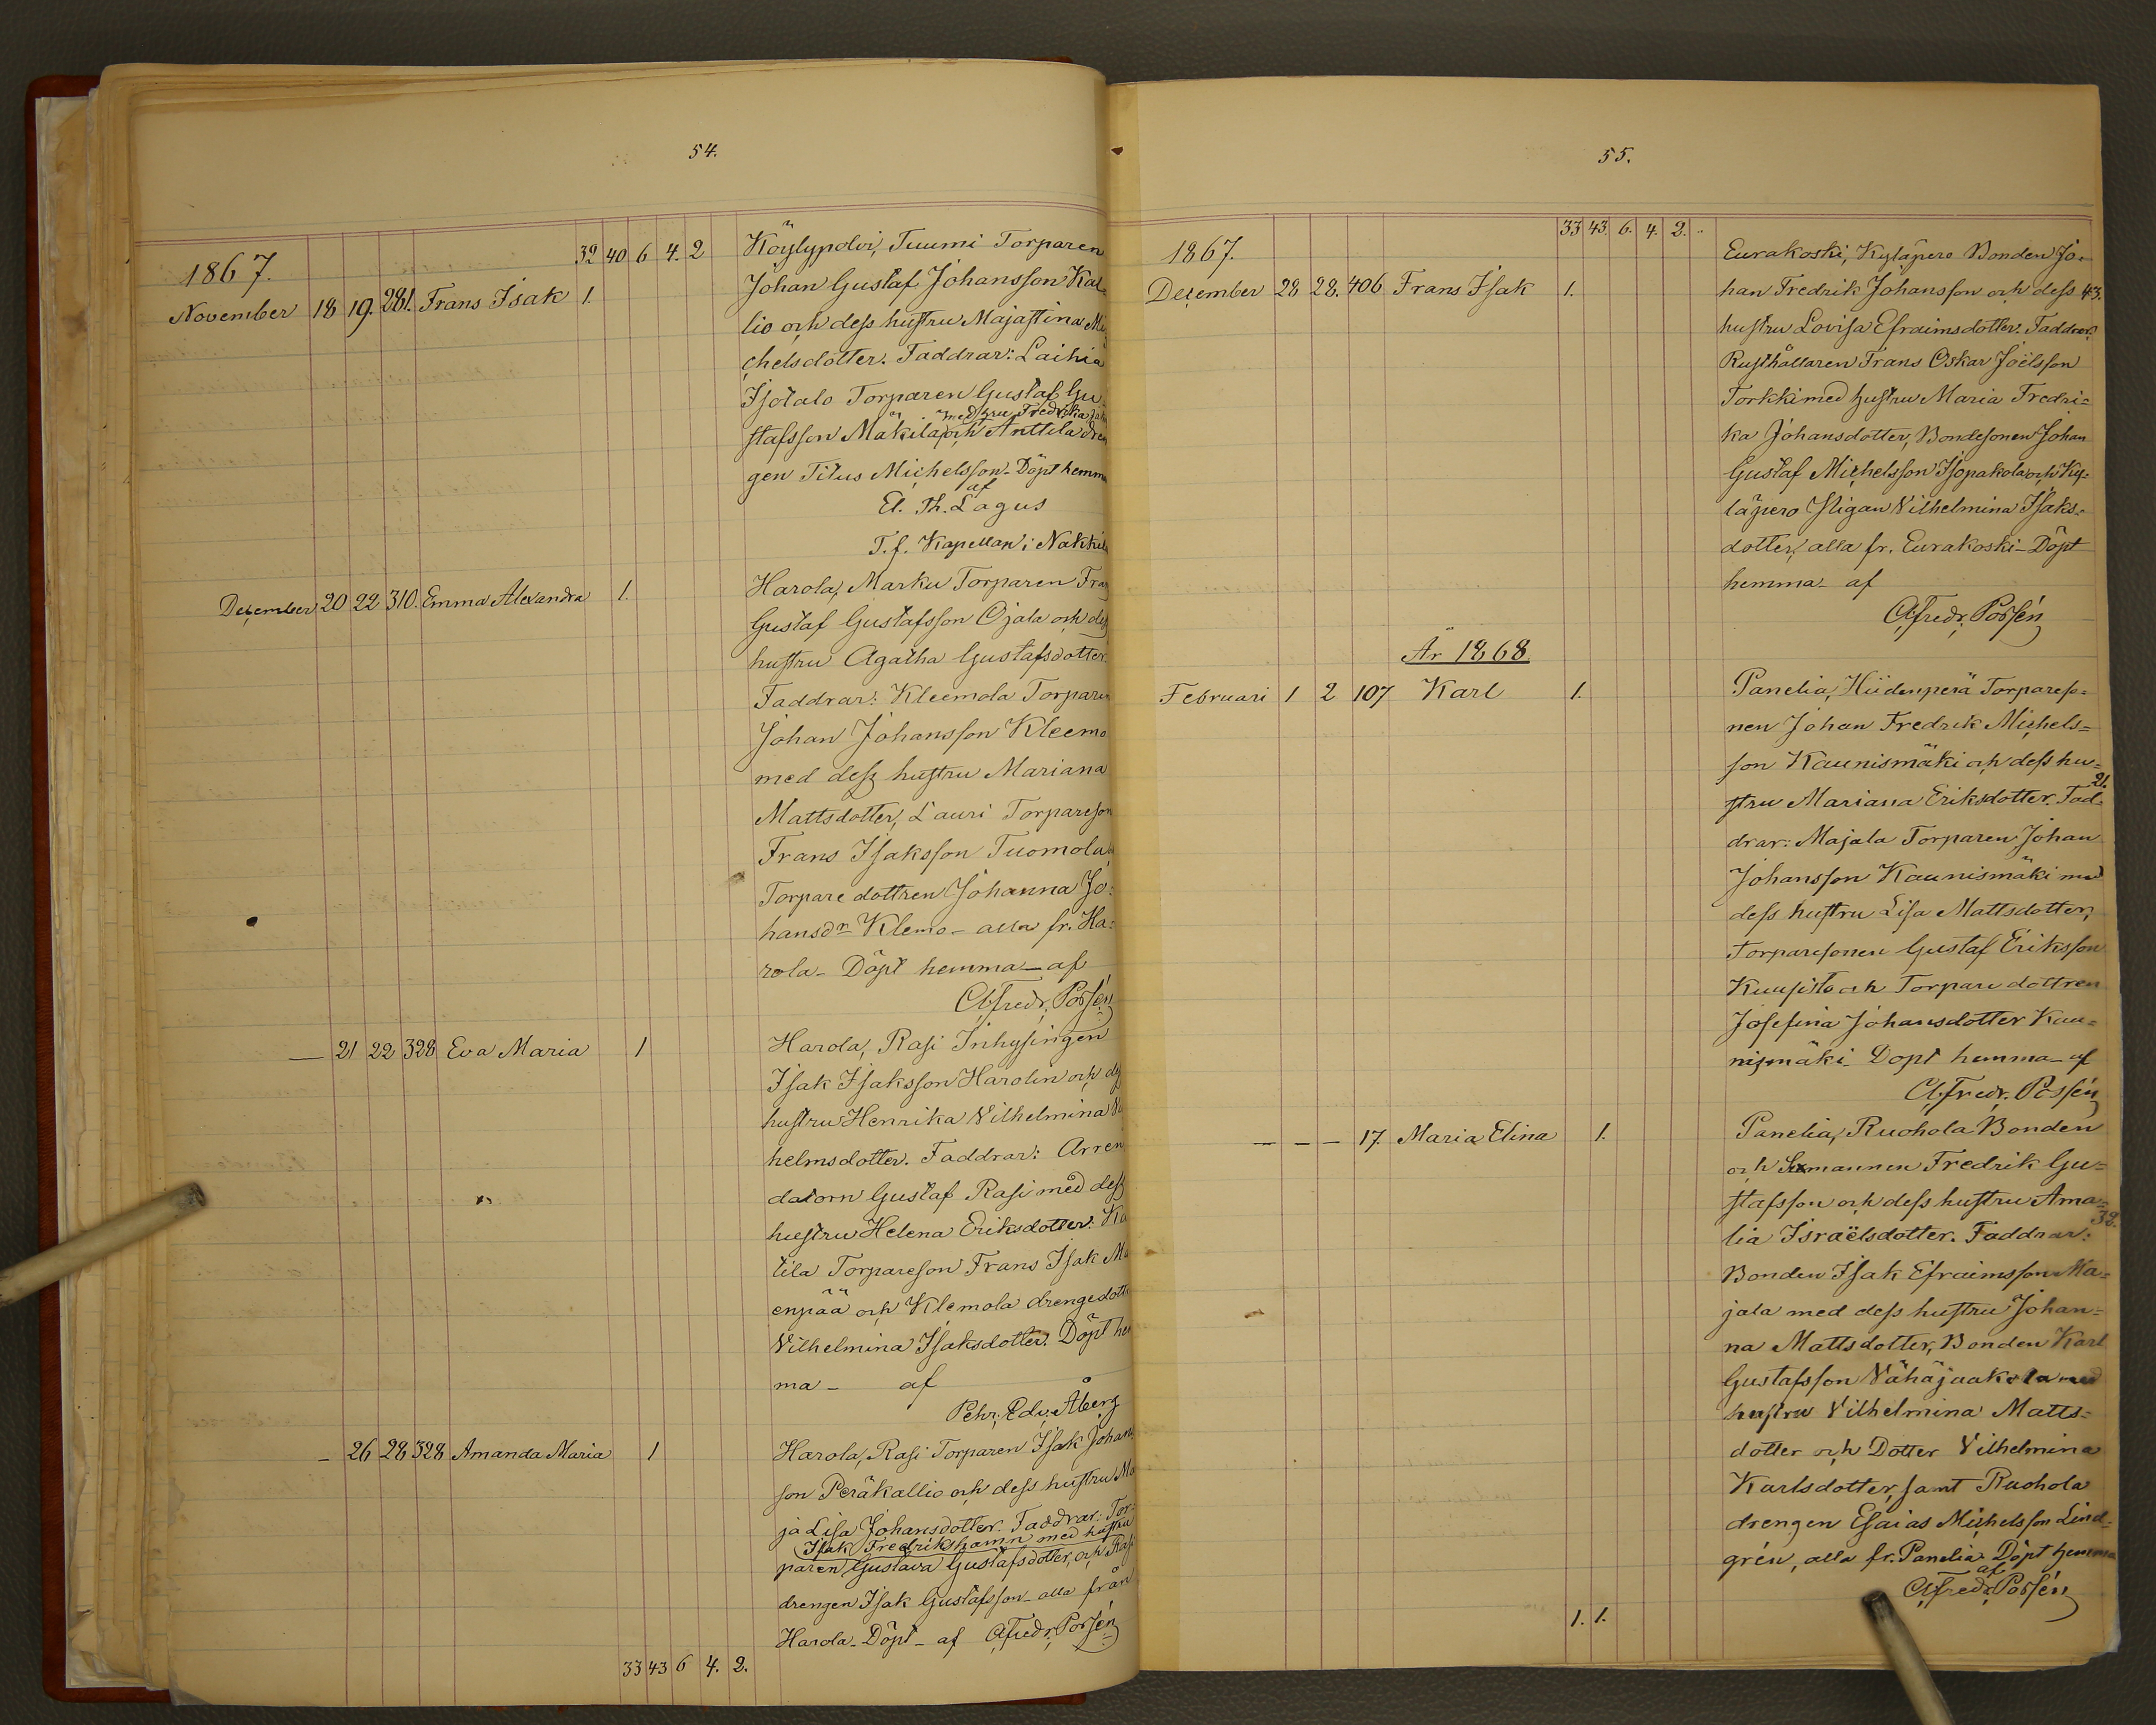 54.
32 40 6 4. 2
1867.
November 18 19. 281. Frans Isak 1.
Köylypolvi, Tuumi Torparen
Johan Gustaf Johansson Kal=
lio och dess hustru Majastina Mi
chelsdotter. Faddrar: Laihia
Isotalo Torparen Gustaf Gu
med hru Fredrika
stafsson Mäkilä, och Anttila dren
gen Titus Michelsson - Döpt hemma
af
El. Th. Lagus
T.f. Kapellan i Nakkila
December 20 22 310. Emma Alexandra 1.
Harola, Marku Torparen Frans
Gustaf Gustafsson Ojala och dess
hustru Agatha Gustafsdotter
Faddrar: Kleemola Torparen
Johan Johansson Kleemo
med dess hustru Mariana
Mattsdotter, Lauri Torpareson
Frans Isaksson Tuomola
Torpare dottren Johanna Jo=
hansdr Klemo - alla fr. Ha=
rola - Döpt hemma - af
A. Fredr. Porsén
— 21 22 328 Eva Maria 1
Harola, Rasi Inhysingen
Isak Isaksson Harolin och dess
hustru Henrika Vilhelmina Vil
helmsdotter. Faddrar: Arren
datorn Gustaf Rasi med dess
hustru Helena Eriksdotter. Ka
tila Torpareson Frans Isak Ma
enpää och Klemola drengedotter
Vilhelmina Isaksdotter. Döpt hem
ma - af
Pehr. Edv. Åberg
- 26 28 328 Amanda Maria 1
Harola, Rasi Torparen Isak Johans
son Peräkallio och dess hustru Ma
ja Lisa Johansdotter. Faddrar: Tor=
Isak Fredrikshamn med hustru
paren Gustava Gustafsdotter, och Rasi
drengen Isak Gustafsson - alla från
Harola - Döpt - af A. Fredr. Porsén
33 43 6 4. 2.
55.
33 43. 6. 4. 2.
1867.
December 28 28. 406 Frans Isak 1.
Eurakoski, Kyläpero Bonden Jo=
han Fredrik Johansson och dess 43.
hustru Lovisa Efraimsdotter. Faddrar:
Rusthållaren Frans Oskar Joëlsson
Torkki med hustru Maria Fredri=
ka Johansdotter, Bondesonen Johan
Gustaf Michelsson Isopakola och Ky=
läpero Pigan Vilhelmina Isaks=
dotter, alla fr. Eurakoski - Döpt
hemma - af
A. Fredr. Porsén
År 1868
Februari 1 2 107 Karl 1.
Panelia, Hiidenperä Torpareso=
nen Johan Fredrik Michels=
son Kaunismäki och dess hu=
21.
stru Mariana Eriksdotter. Fad=
drar: Majala Torparen Johan
Johansson Kaunismäki med
dess hustru Lisa Mattsdotter,
Torparesonen Gustaf Eriksson
Kuusisto och Torpare dottren
Josefina Johansdotter Kau=
nismäki - Döpt hemma - af
A. Fredr. Porsén
— — — 17 Maria Elina 1.
Panelia, Ruohola Bonden
och Sexmannen Fredrik Gu=
stafsson och dess hustru Ama=
38.
lia Israëlsdotter. Faddrar:
Bonden Isak Efraimsson Ma=
jala med dess hustru Johan=
na Mattsdotter, Bonden Karl
Gustafsson Vähäjaakola med
hustru Vilhelmina Matts=
dotter och Dotter Vilhelmina
Karlsdotter, samt Ruohola
drengen Esaias Michelsson Lind=
grén, alla fr. Panelia - Döpt hemma
af
A. Fredr. Porsén
1. 1.